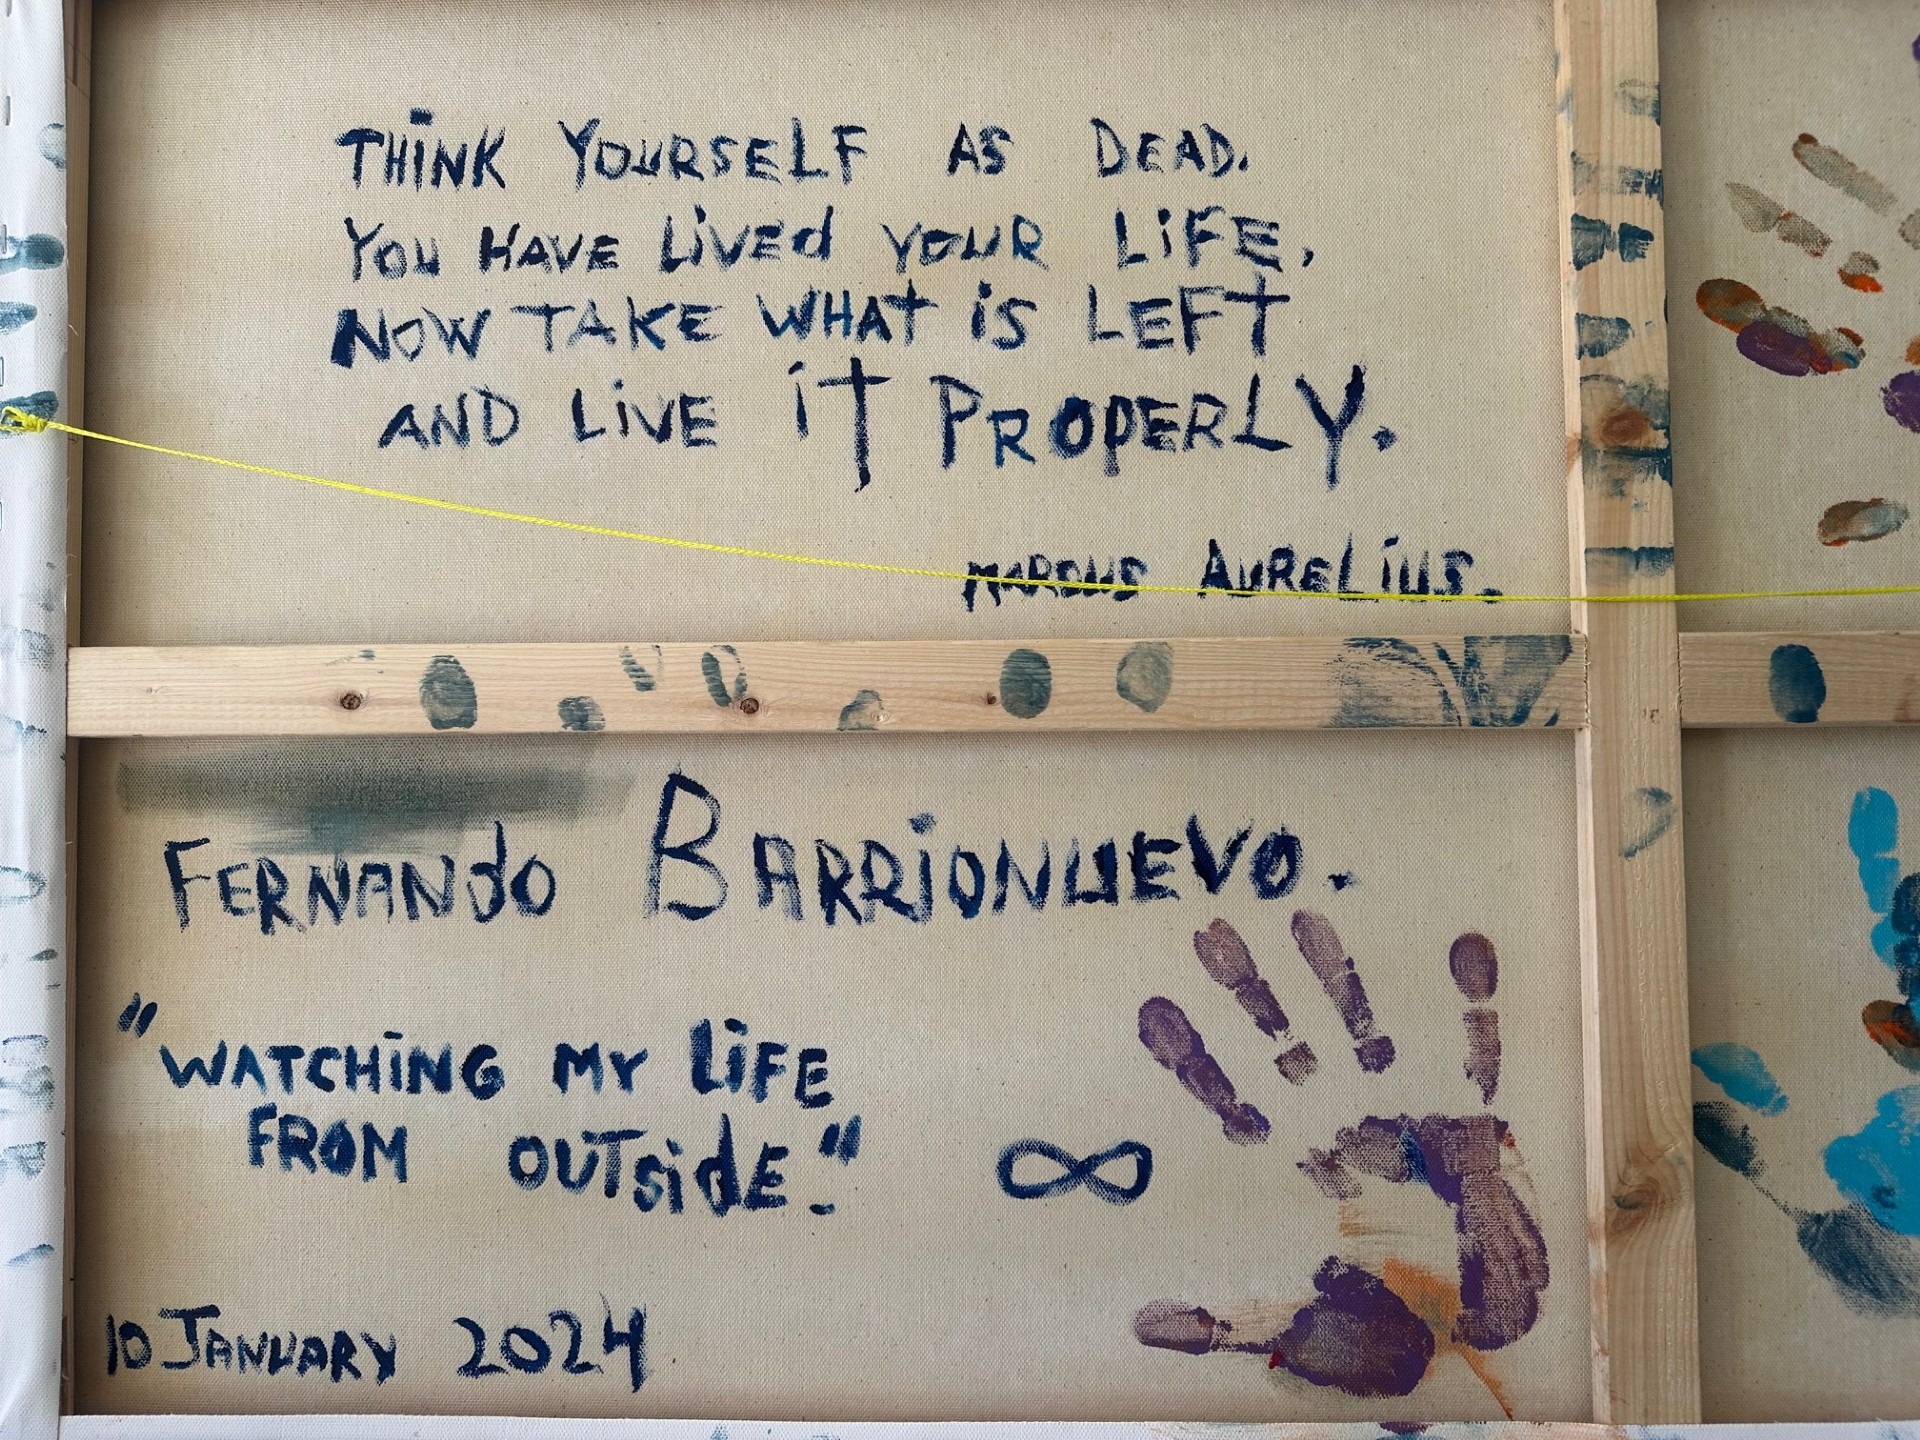 THINK YOURSELF AS DEAD.
YOU HAVE LIVEd YOUR LiFE,
NOW TAKE WHAT iS LEFT
AND LiVE iT PROPERLY.
MARCUS AURELiUS.
FERNANdO BARRiONUEVO.
"WATCHiNG MY LiFE
FROM OUTSidE."
∞
10 JANUARY 2024